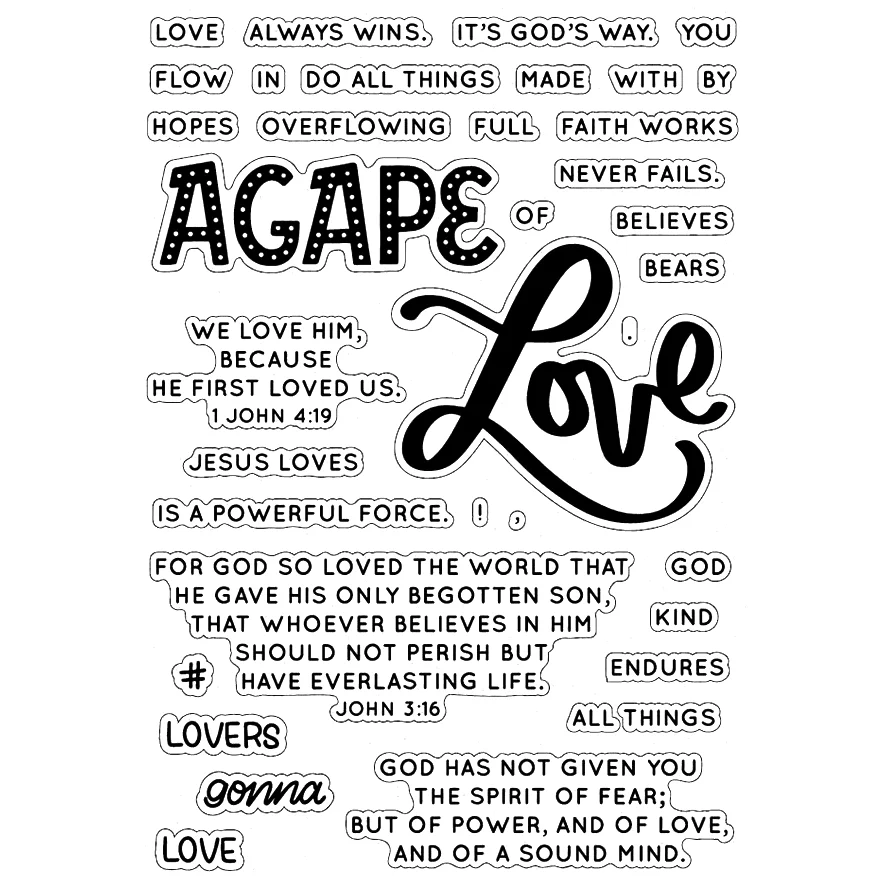 LOVE ALWAYS WINS. IT'S GOD'S WAY. YOU
FLOW IN DO ALL THINGS MADE WITH BY
HOPES OVERFLOWING FULL FAITH WORKS
AGAPE
NEVER FAILS.
OF
BELIEVES
BEARS
Love
.
WE LOVE HIM,
BECAUSE
HE FIRST LOVED US.
1 JOHN 4:19
JESUS LOVES
IS A POWERFUL FORCE. ! ,
FOR GOD SO LOVED THE WORLD THAT
HE GAVE HIS ONLY BEGOTTEN SON,
THAT WHOEVER BELIEVES IN HIM
SHOULD NOT PERISH BUT
HAVE EVERLASTING LIFE.
JOHN 3:16
GOD
KIND
ENDURES
ALL THINGS
#
LOVERS
gonna
LOVE
GOD HAS NOT GIVEN YOU
THE SPIRIT OF FEAR;
BUT OF POWER, AND OF LOVE,
AND OF A SOUND MIND.